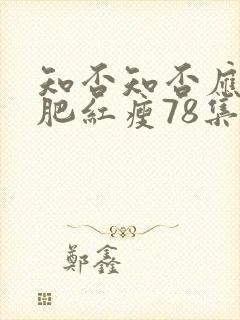 知否知否應
肥紅瘦78集
鄭鑫